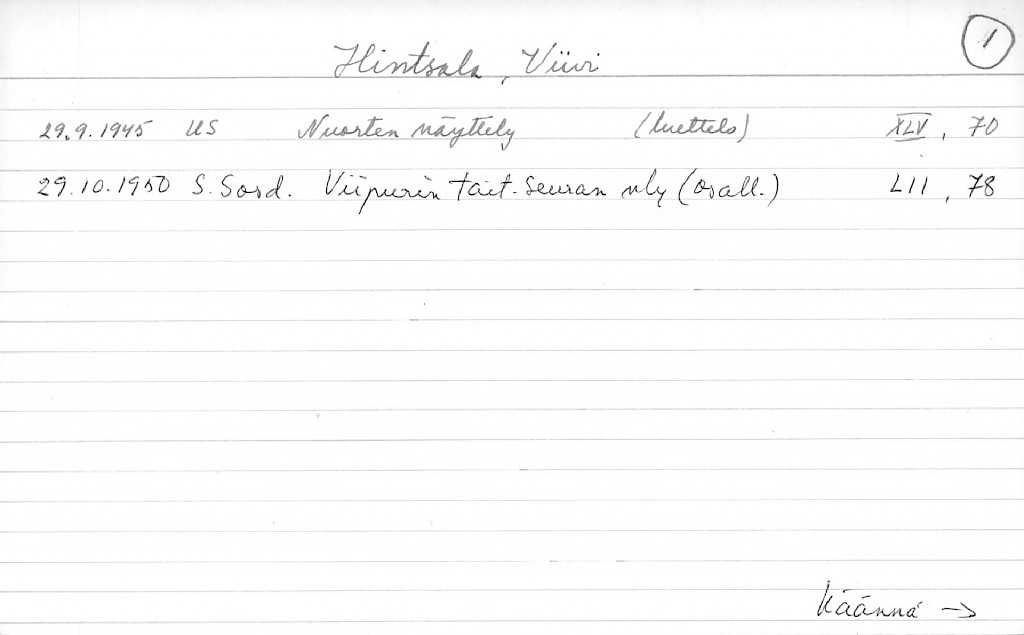 1
Hintsala, Viivi
29.9.1945 US Nuorten näyttely (luettelo) XLV, 70
29.10.1950 S. Sosd. Viipurin tait. seuran nly (osall.) LII, 78
Käännä →